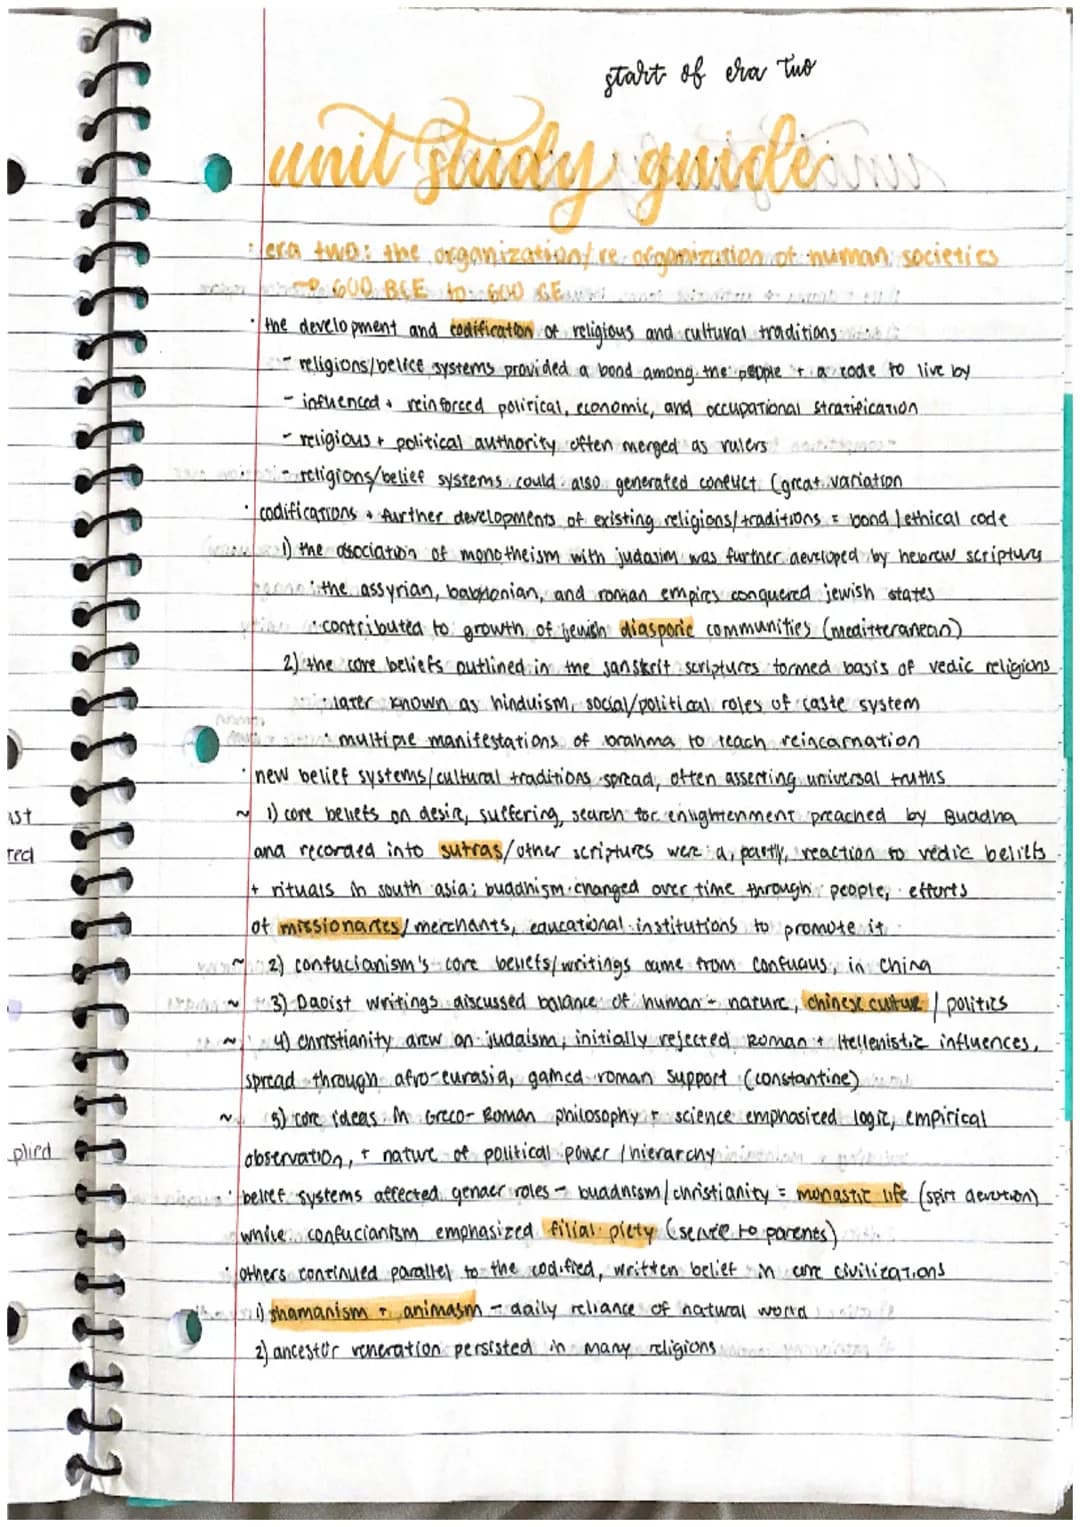 start of era two
unit study guide
· era two: the organization/re organization of human societies
→ 600 BCE to 600 CE
· the development and codification of religious and cultural traditions
- religions/belief systems provided a bond among the people + a code to live by
- influenced + reinforced political, economic, and occupational stratification
- religious + political authority often merged as rulers
- religions/belief systems could also generated conflict (great variation
· codifications + further developments of existing religions/traditions = bond/ethical code
1) the asociation of monotheism with judasim was further developed by hebrew scripture
· the assyrian, babylonian, and roman empires conquered jewish states
· contributed to growth of jewish diasporic communities (meditteranean)
2) the core beliefs outlined in the sanskrit scriptures formed basis of vedic religions
· later known as hinduism, social/political roles of caste system
· multiple manifestations of brahma to teach reincarnation
· new belief systems/cultural traditions spread, often asserting universal truths
~ 1) core beliefs on desire, suffering, search for enlightenment preached by Buddha
and recorded into sutras/other scriptures were a, partly, reaction to vedic beliefs
+ rituals in south asia; buddhism changed over time through people, efforts
of missionaries/merchants, educational institutions to promote it
~ 2) confucianism's core beliefs/writings came from Confucius, in China
~ 3) Daoist writings discussed balance of human - nature, chinese culture / politics
~ 4) christianity drew on judaism, initially rejected Roman + Hellenistic influences,
spread through afro-eurasia, gained roman support (constantine)
~ 5) core ideas in Greco-Roman philosophy + science emphasized logic, empirical
observation, + nature of political power/hierarchy
· belief systems affected gender roles - buddhism/christianity = monastic life (spirt devotion)
while confucianism emphasized filial piety (service to parents)
· others continued parallel to the codified, written belief in core civilizations
1) shamanism + animasm - daily reliance of natural world
2) ancestor veneration persisted in many religions
ast
ted
plied